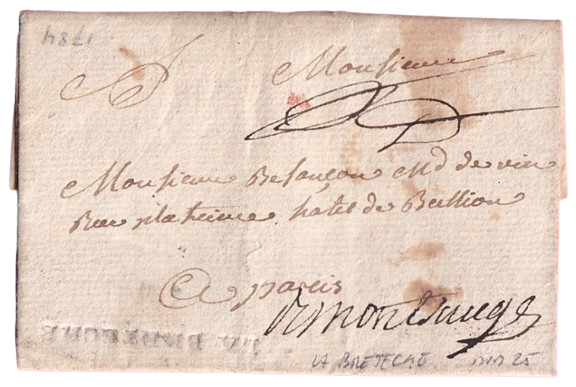 1784
Monsieur
Monsieur Besançon Md de vin
Rue platriere hotel de Bullion
A paris
LA BRETECHE